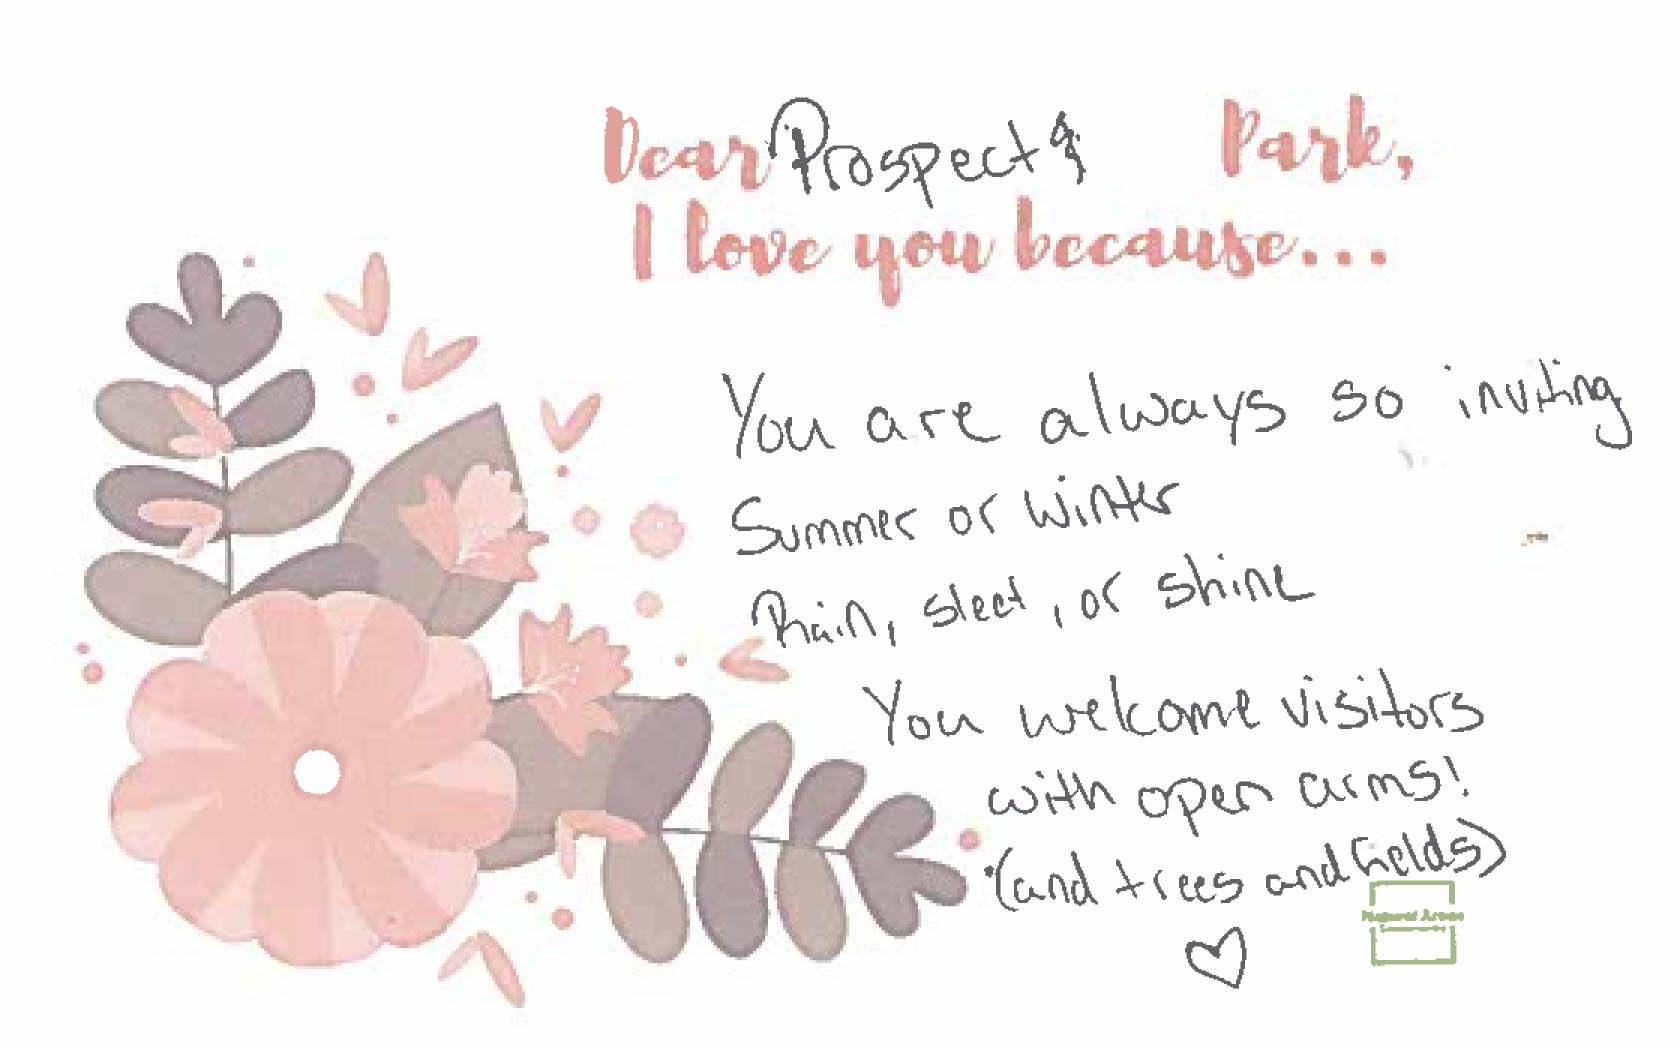 Dear Prospect Park,
I love you because...
You are always so inviting
Summer or Winter
Rain, sleet, or shine
You welcome visitors
with open arms!
(and trees and fields)
Natural Areas
Conservancy